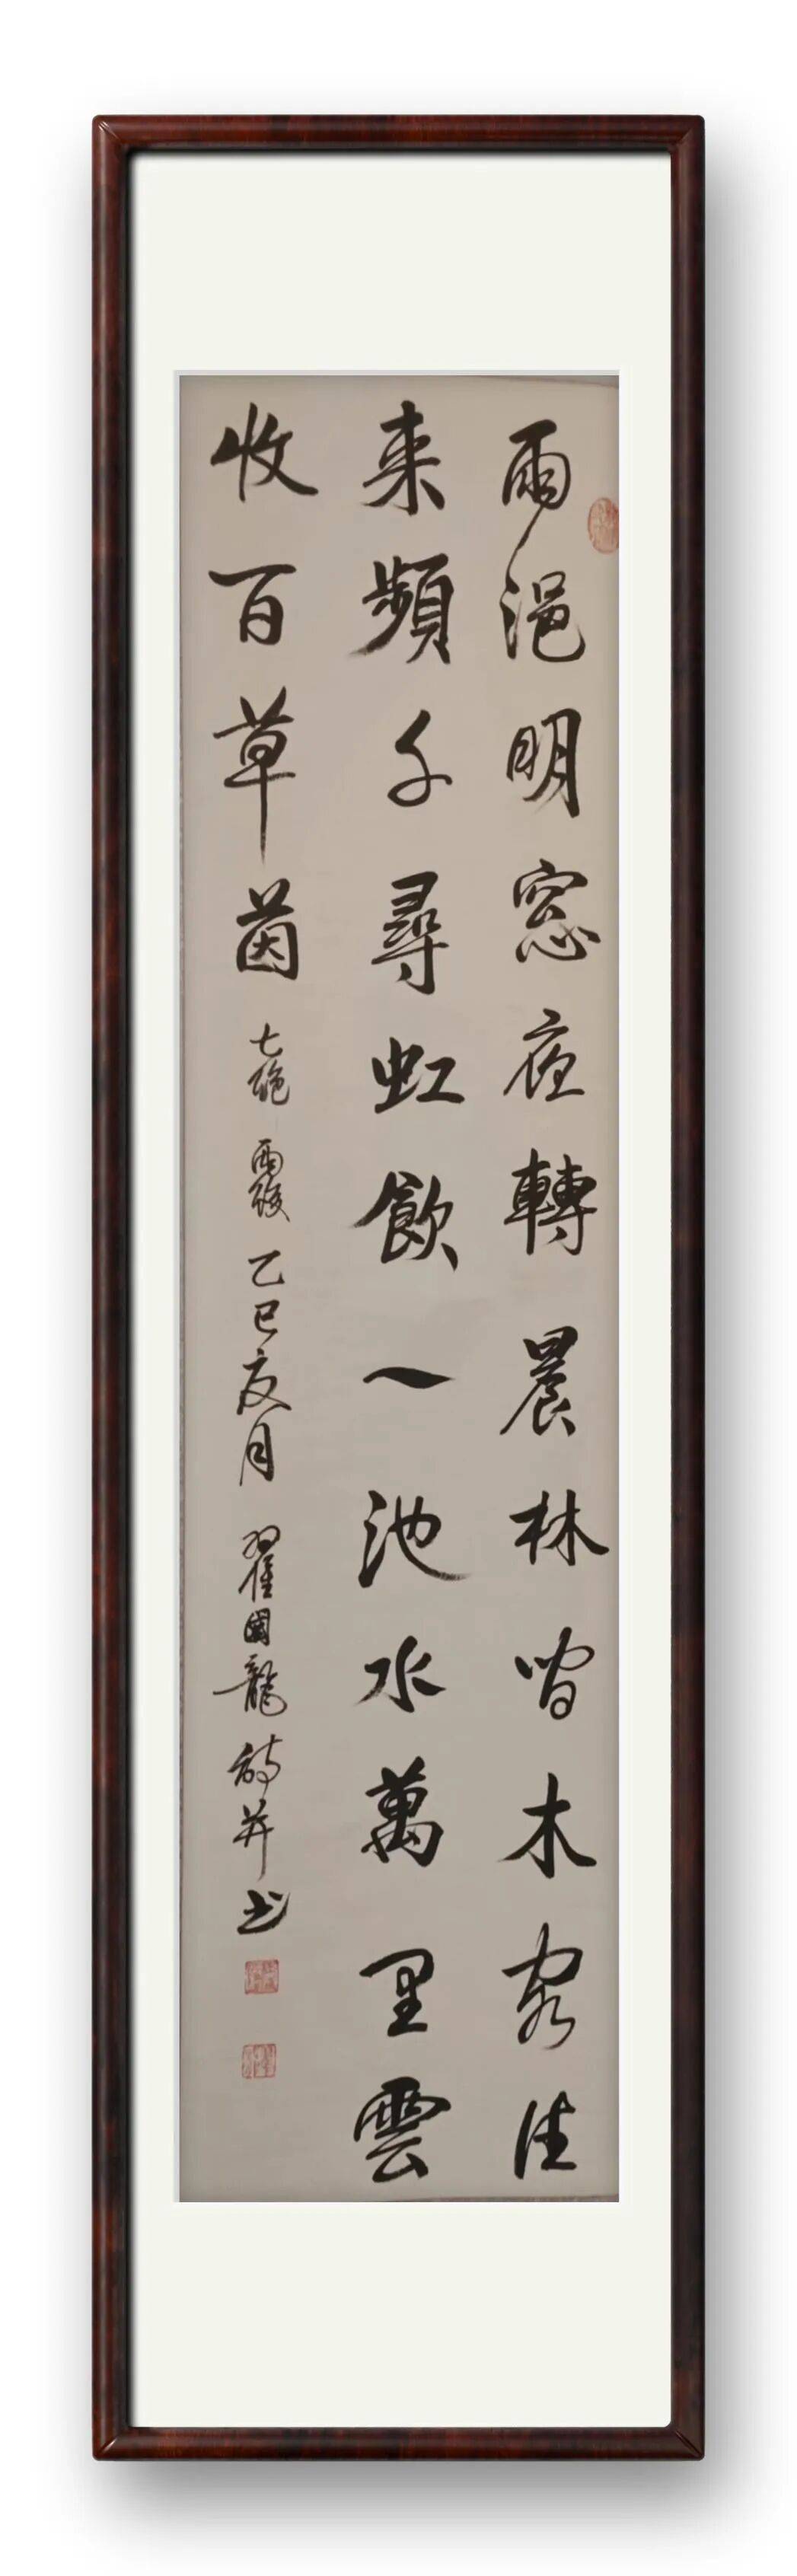 雨浥明窓夜轉晨林間木客往
来頻千尋虹飲一池水萬里雲
收百草茵七絕雨後乙巳夏月翟國龍詩并书